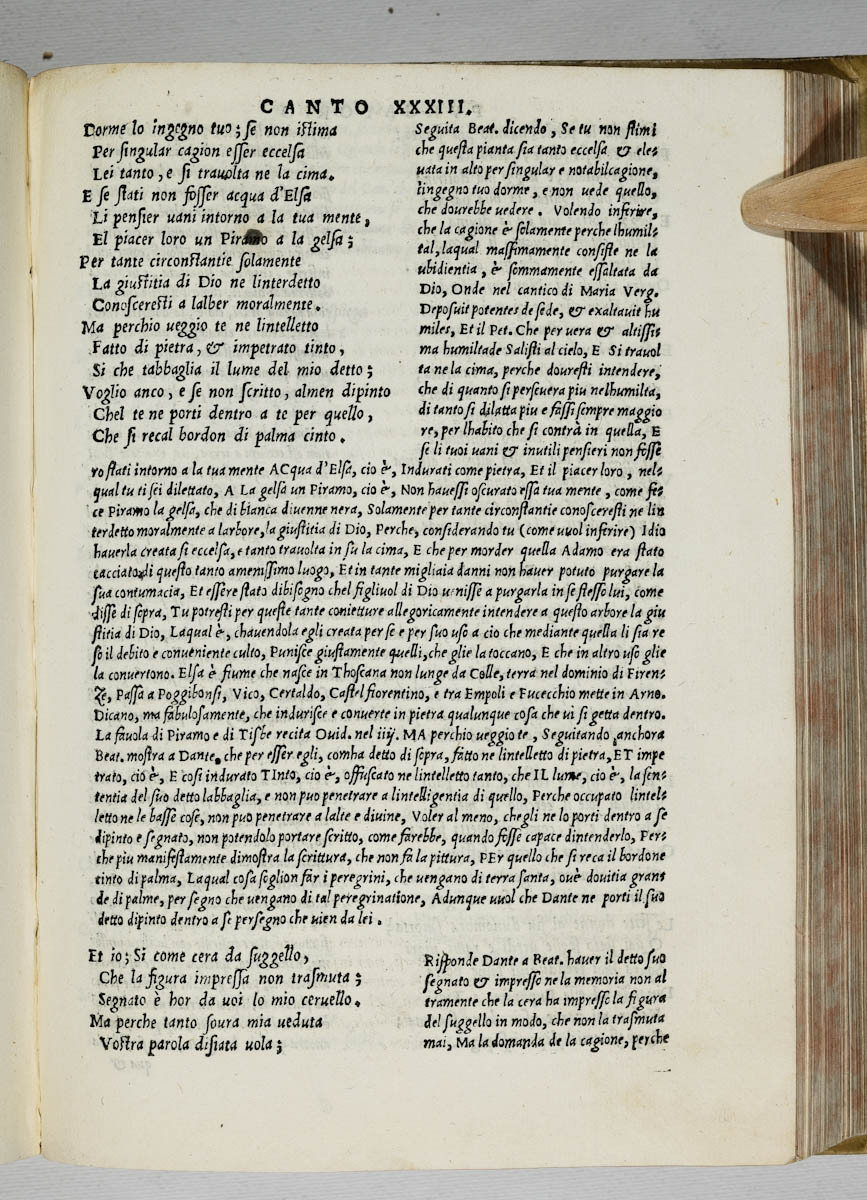 CANTO XXXIII.
Dorme lo ingegno tuo; se non istima
Per singular cagion esser eccelsa
Lei tanto, e si travolta ne la cima.
E se stati non fosser acqua d'Elsa
Li pensier uani intorno a la tua mente,
El piacer loro un Piramo a la gelsa;
Per tante circonstantie solamente
La giustitia di Dio ne linterdetto
Conosceresti a lalber moralmente.
Ma perchio ueggio te ne lintelletto
Fatto di pietra, & impetrato tinto,
Si che tabbaglia il lume del mio detto;
Voglio anco, e se non scritto, almen dipinto
Chel te ne porti dentro a te per quello,
Che si recal bordon di palma cinto.
Seguita Beat. dicendo, Se tu non stimi
che questa pianta sia tanto eccelsa & ele-
uata in alto per singular e notabil cagione,
lingegno tuo dorme, e non vede quello,
che dourebbe vedere. Volendo inferire,
che la cagione è solamente perche lhumil-
tal, laqual massimamente consiste ne la
ubidientia, è sommamente essaltata da
Dio, Onde nel cantico di Maria Verg.
Deposuit potentes de sede, & exaltauit hu
miles, Et il Pet. Che per uera & altissi-
ma humiltade Salisti al cielo, E Si trauol
ta ne la cima, perche douresti intendere,
che di quanto si perseuera piu nelhumilta,
di tanto si dilatta piu e fassi sempre maggio
re, per lhabito che si contrà in quella, E
se li tuoi uani & inutili pensieri non fosse
ro stati intorno a la tua mente ACqua d'Elsa, cio è, Indurati come pietra, Et il piacer loro, nel-
qual tu ti sei dilettato, A La gelsa un Piramo, cio è, Non hauessi oscurato essa tua mente, come fe-
ce Piramo la gelsa, che di bianca diuenne nera, Solamente per tante circonstantie conosceresti ne lin
terdetto moralmente a larbore, la giustitia di Dio, Perche, considerando tu (come uuol inferire) Idio
hauerla creata si eccelsa, e tanto trauolta in su la cima, E che per morder quella Adamo era stato
cacciato di questo tanto amenissimo luogo, Et in tante migliaia danni non hauer potuto purgare la
sua contumacia, Et essere stato dibisogno chel figliuol di Dio uenisse a purgarla in se stesso lui, come
disse di sopra, Tu potresti per queste tante conietture allegoricamente intendere a questo arbore la giu
stitia di Dio, Laqual è, chauendola egli creata per se e per suo uso a cio che mediante quella li sia re
so il debito e conueniente culto, Punisce giustamente quelli, che glie la toccano, E che in altro uso glie
la conuertono. Elsa è fiume che nasce in Thoscana non lunge da Colle, terra nel dominio di Firen-
ze, Passa a Poggibonsi, Vico, Certaldo, Castel fiorentino, e tra Empoli e Fucecchio mette in Arno.
Dicano, ma fabulosamente, che indurisce e conuerte in pietra qualunque cosa che ui si getta dentro.
La fauola di Piramo e di Tisbe recita Ouid. nel iiij. MA perchio ueggio te, Seguitando anchora
Beat. mostra a Dante, che per esser egli, comha detto di sopra, fatto ne lintelletto di pietra, ET impe
trato, cio è, E cosi indurato TInto, cio è, offuscato ne lintelletto tanto, che IL lume, cio è, la sen-
tentia del suo detto labbaglia, e non puo penetrare a lintelligentia di quello, Perche occupato lintel-
letto ne le basse cose, non puo penetrare a lalte e diuine, Voler al meno, che gli ne lo porti dentro a se
dipinto e segnato, non potendolo portare scritto, come farebbe, quando fosse capace dintenderlo, Per-
che piu manifestamente dimostra la scrittura, che non fa la pittura, PEr quello che si reca il bordone
cinto di palma, Laqual cosa soglion far i peregrini, che uengano di terra santa, ouè douitia gran-
de di palme, per segno che uengano di tal peregrinatione, Adunque uuol che Dante ne porti il suo
detto dipinto dentro a se per segno che uien da lei.
Et io; Si come cera da suggello,
Che la figura impressa non trasmuta;
Segnato è hor da uoi lo mio ceruello.
Ma perche tanto soura mia ueduta
Vostra parola disiata uola;
Risponde Dante a Beat. hauer il detto suo
segnato & impresso ne la memoria non al
tramente che la cera ha impresso la figura
del suggello in modo, che non la trasmuta
mai, Ma la domanda de la cagione, perche